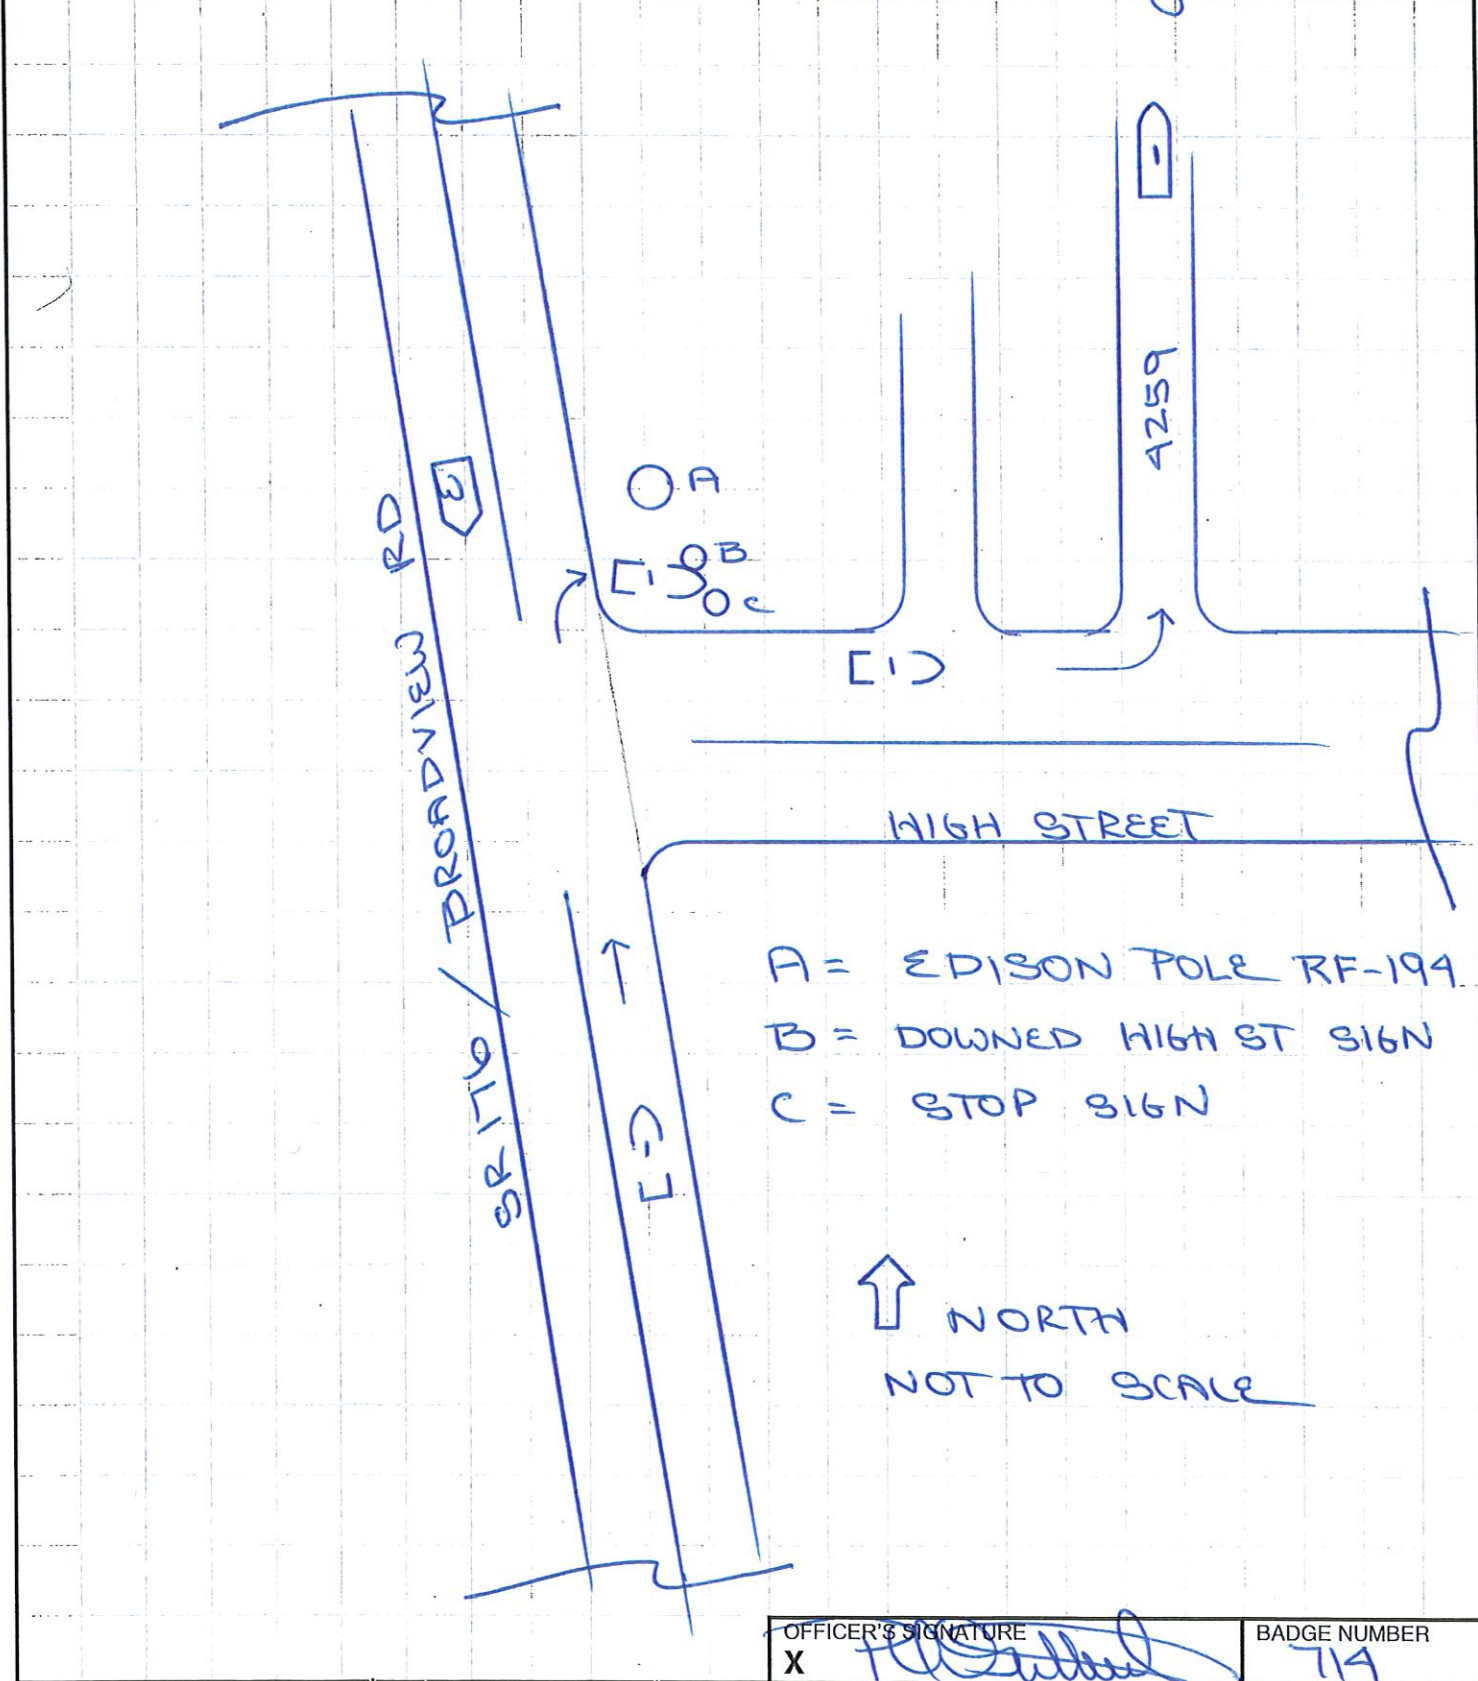 4259
A
RD
3
B
1
C
1
SR 176 / BROADVIEW
HIGH STREET
A = EDISON POLE RF-194
B = DOWNED HIGH ST SIGN
C = STOP SIGN
1
NORTH
NOT TO SCALE
OFFICER'S SIGNATURE
X
BADGE NUMBER
714